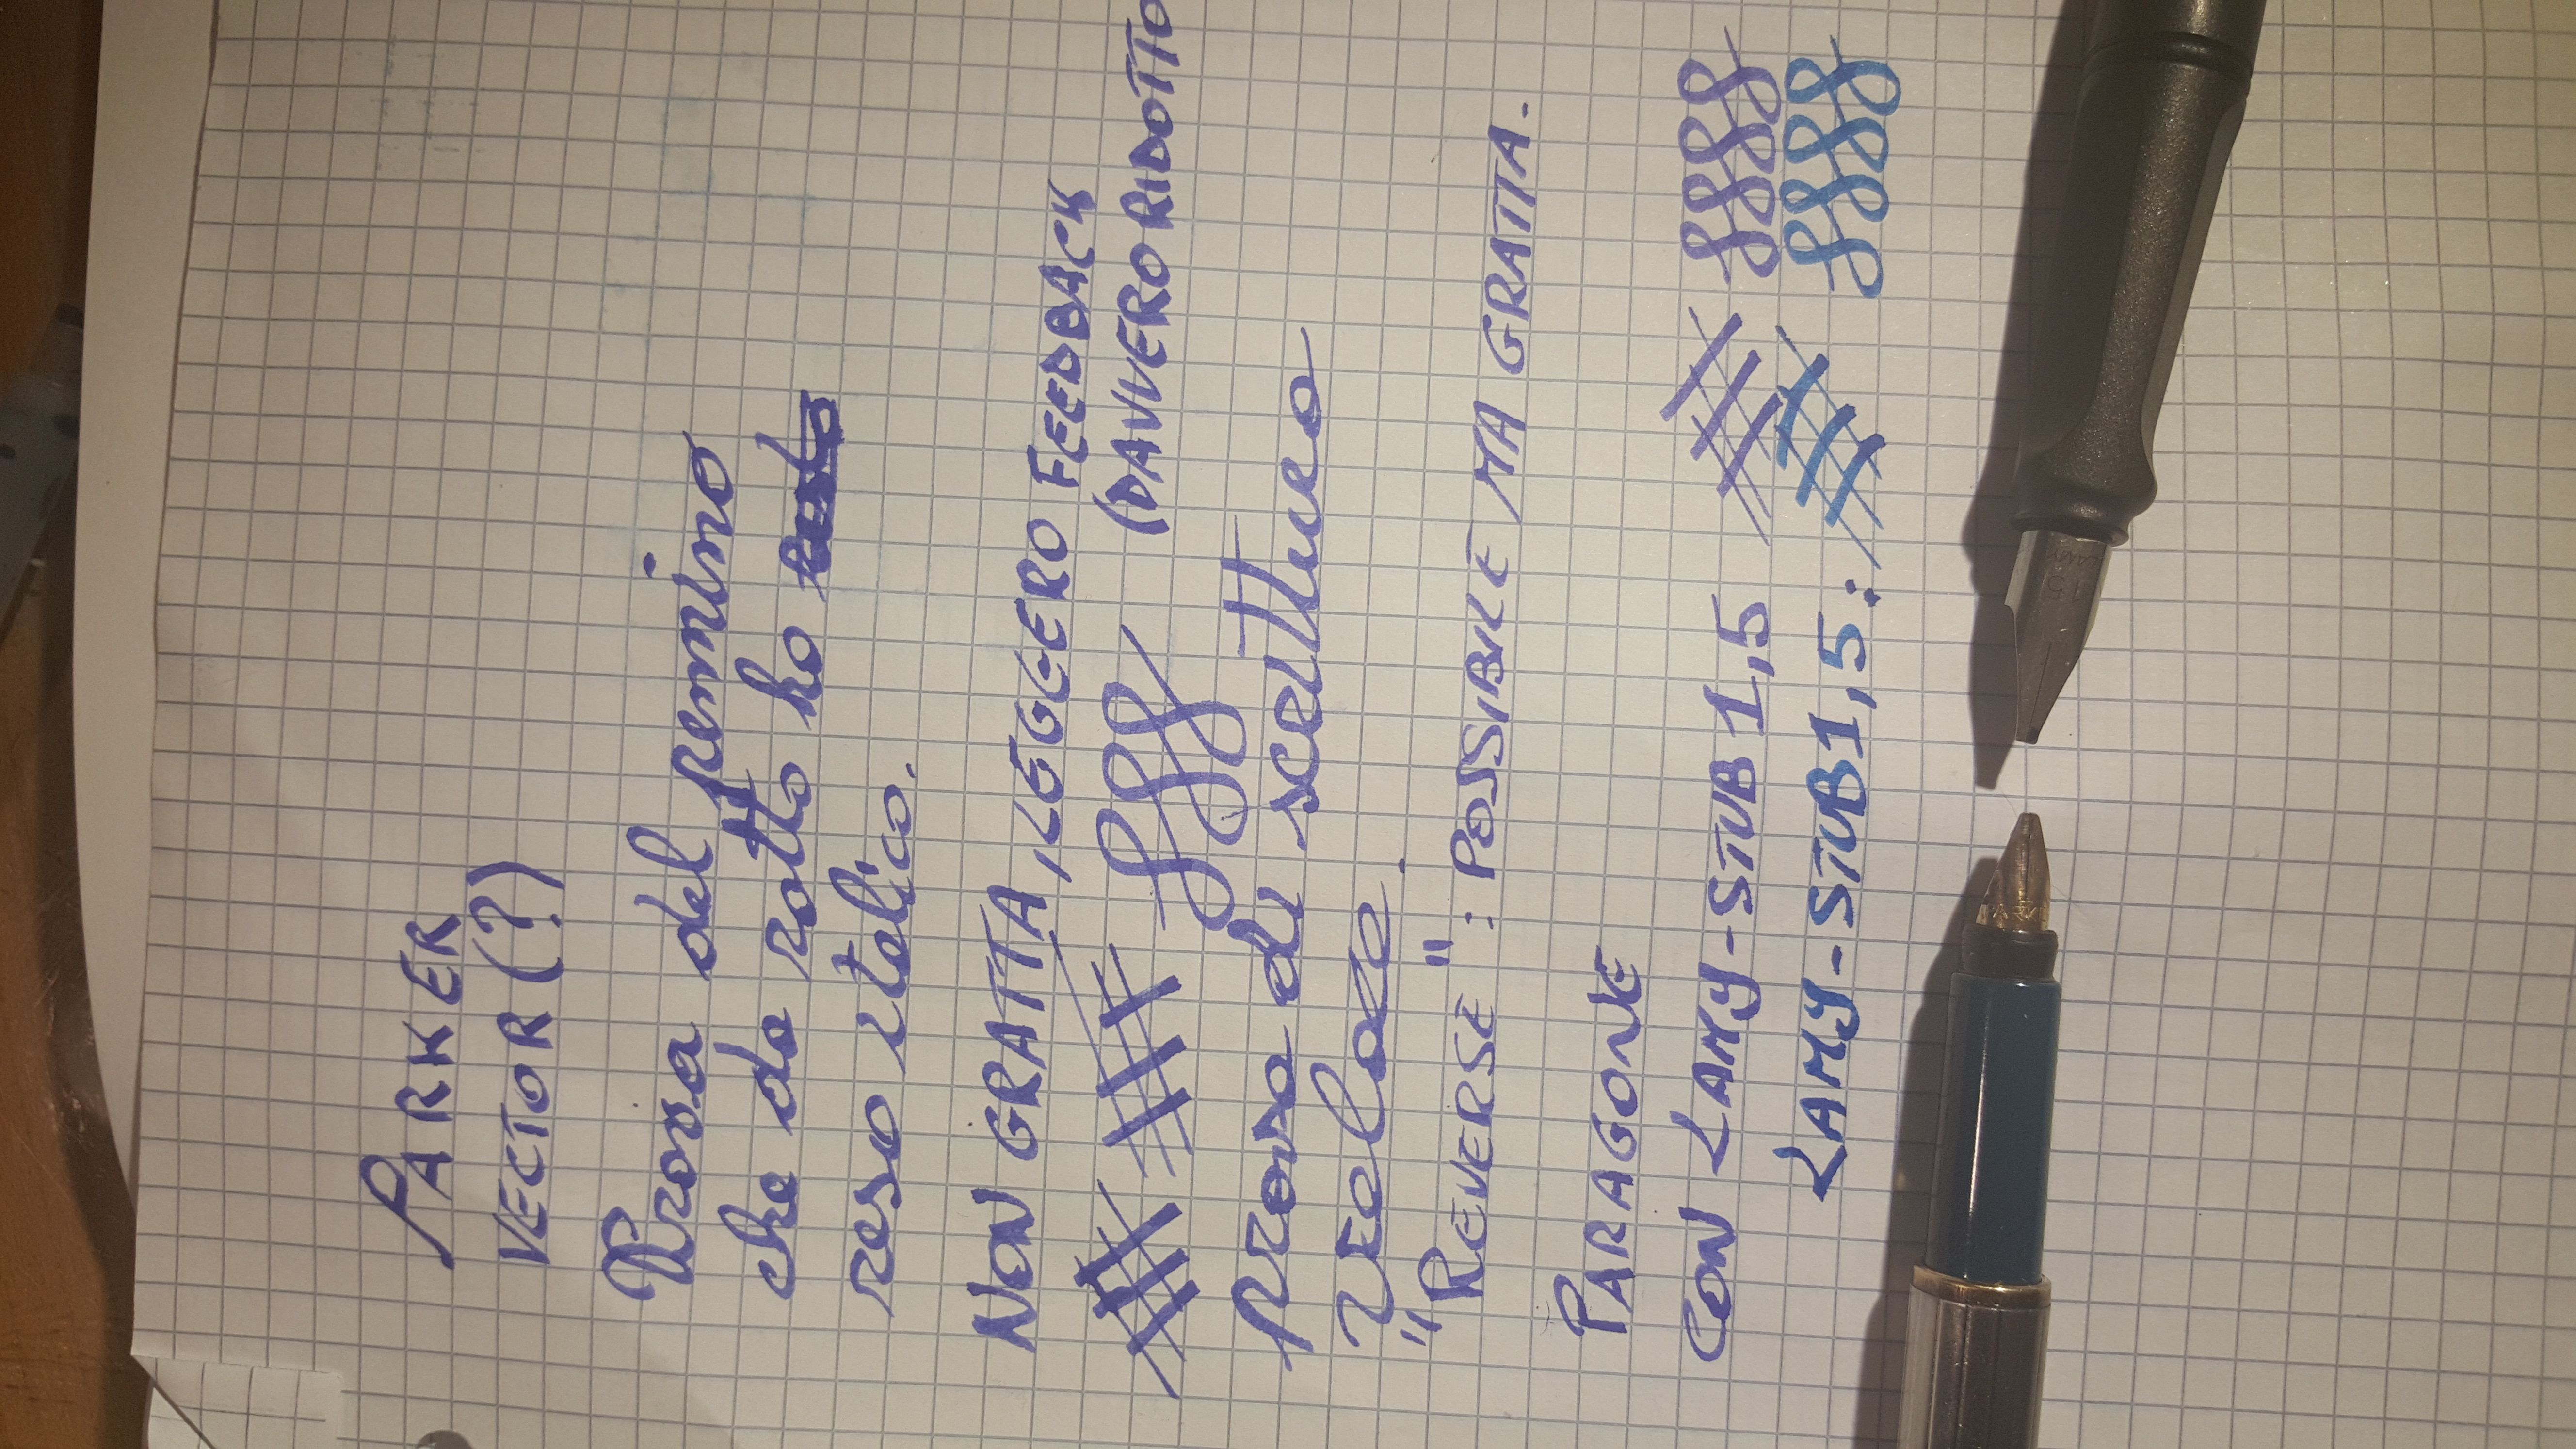 PARKER
VECTOR (?)
Prova del pennino
che da rotto ho
reso italico.
NON GRATTA, LEGGERO FEEDBACK
(DAVVERO RIDOTTO
prova di scrittura
veloce.
"REVERSE": POSSIBILE MA GRATTA.
PARAGONE
CON LAMY-STUB 1,5
LAMY-STUB 1,5:
1.5
LAMY